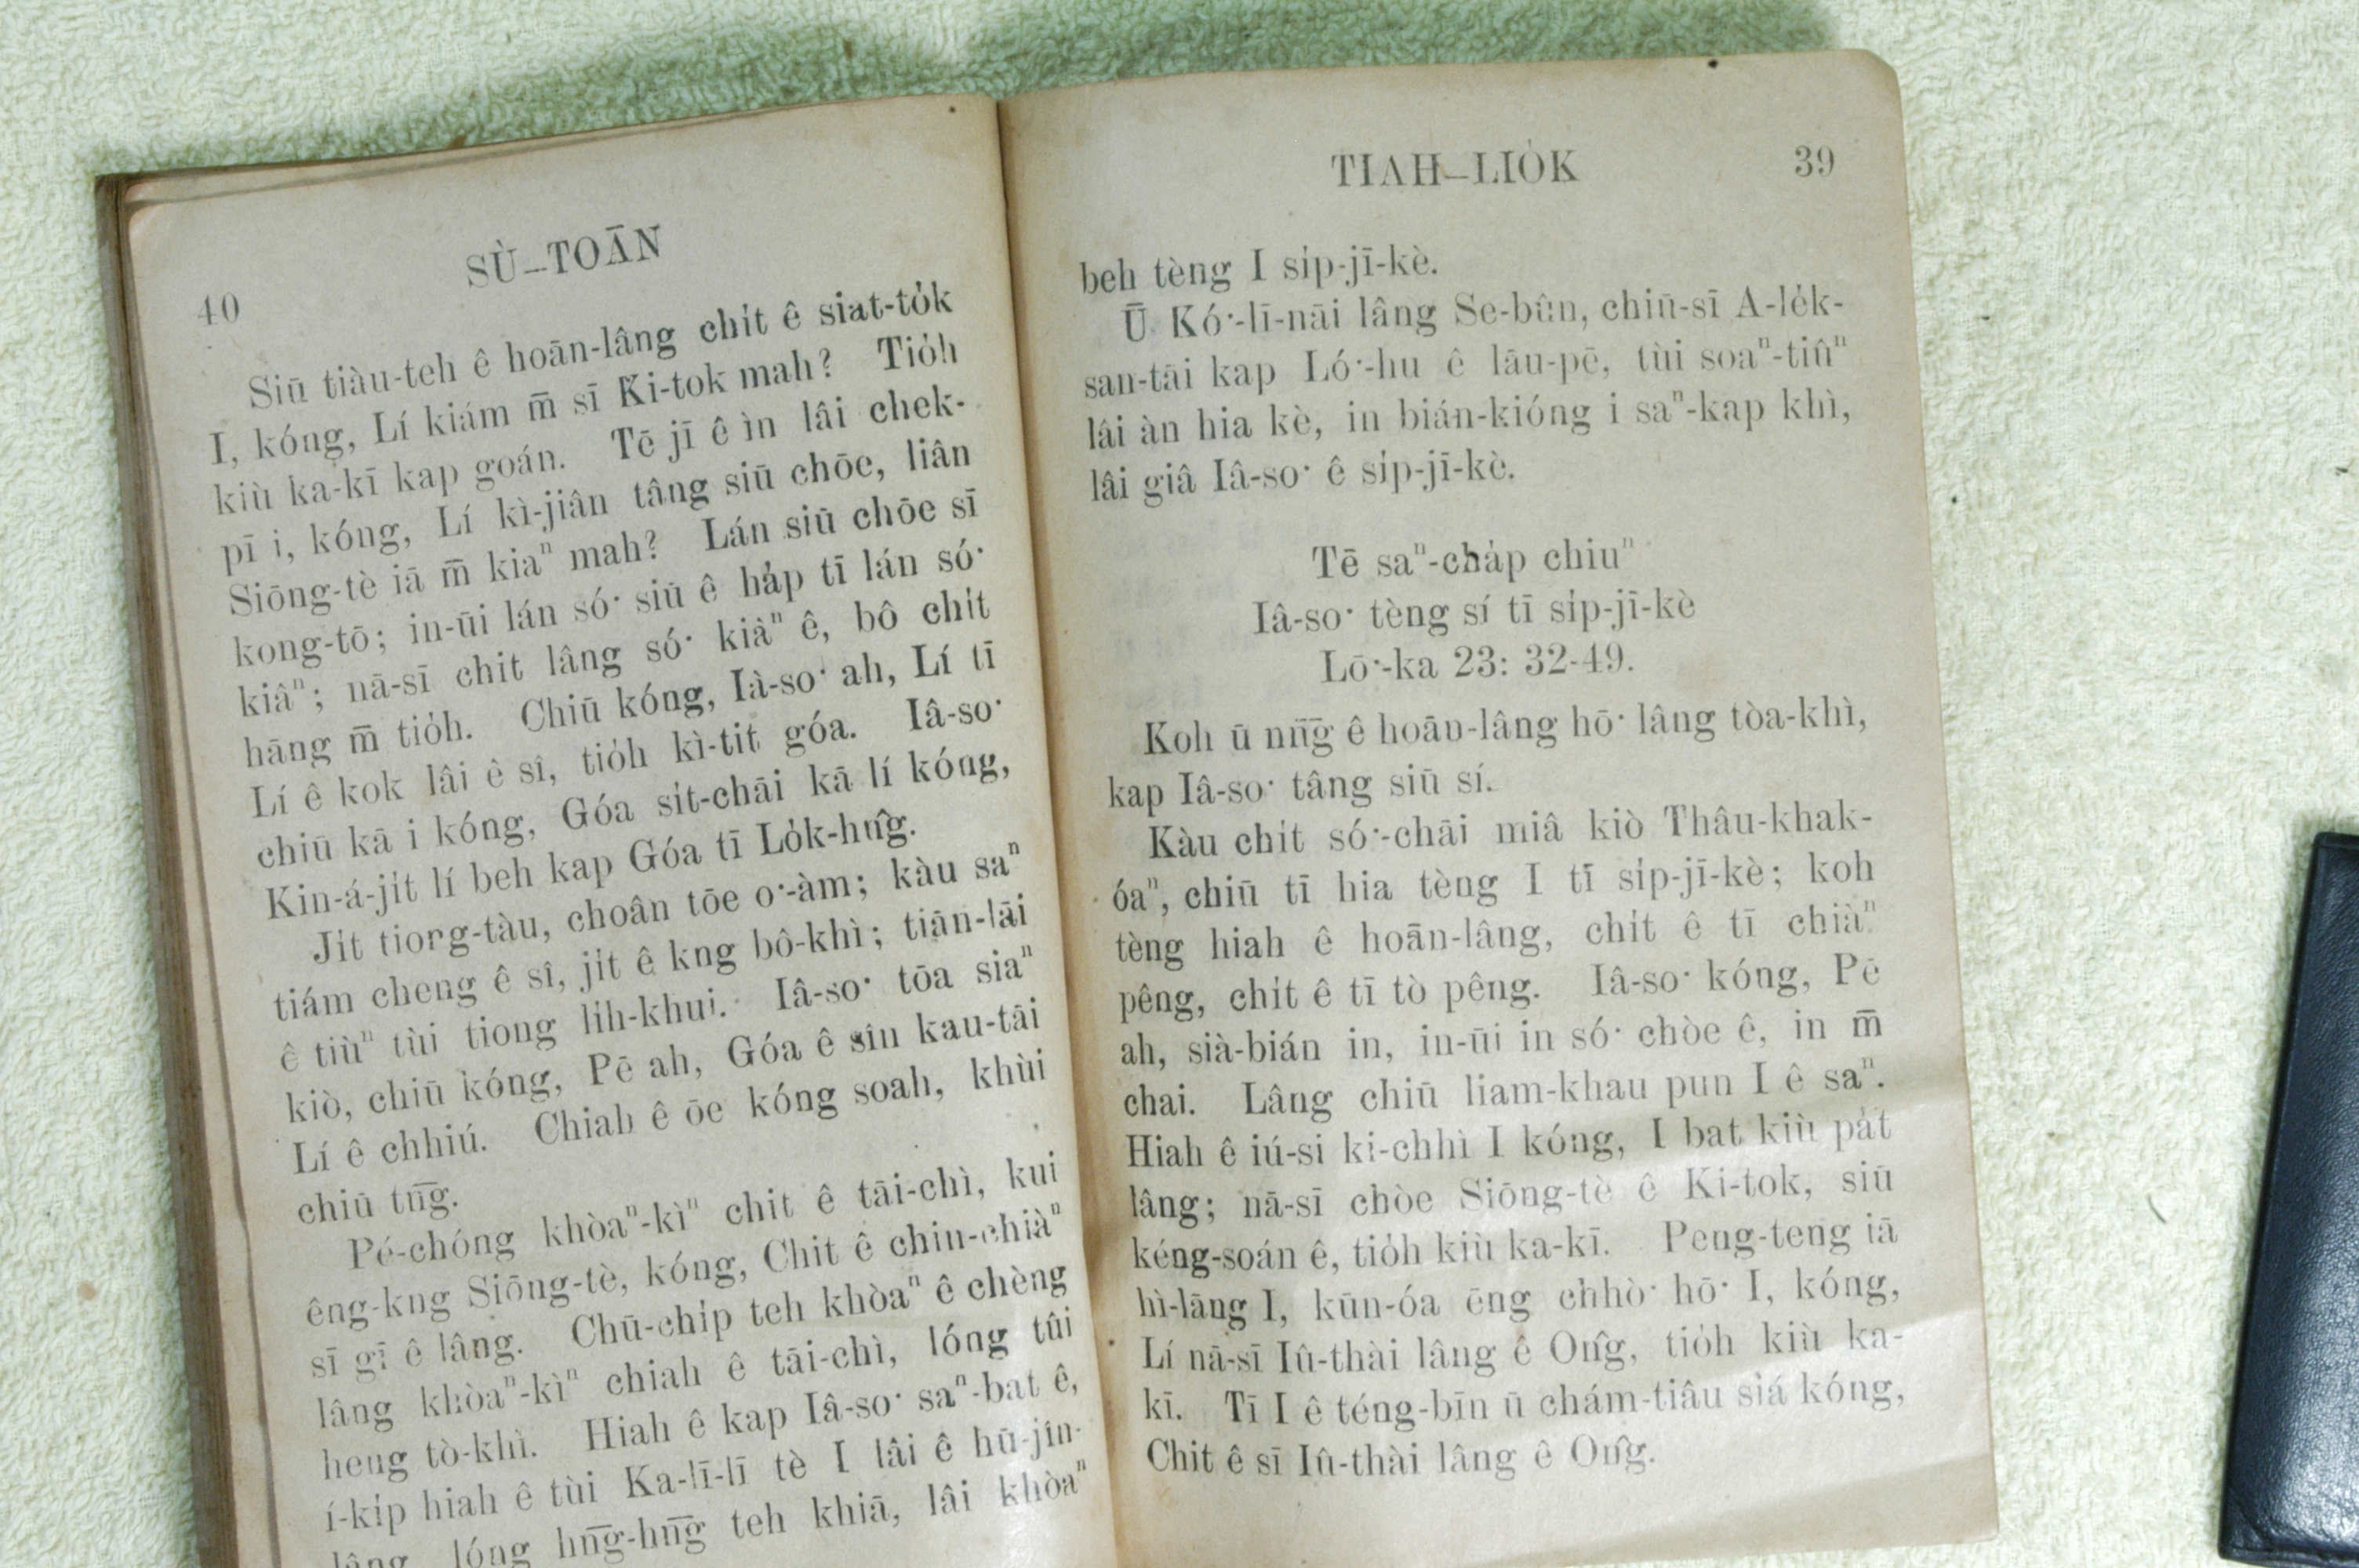 TIAH–LIO̍K 39
beh tèng I si̍p-jī-kè.
Ū Kó͘-lī-nāi lâng Se-bûn, chiū-sī A-le̍k-
san-tāi kap Ló͘-hu ê lāu-pē, tùi soaⁿ-tiûⁿ
lâi àn hia kè, in bián-kióng i saⁿ-kap khì,
lâi giâ Iâ-so͘ ê si̍p-jī-kè.
Tē saⁿ-cha̍p chiuⁿ
Iâ-so͘ tèng sí tī si̍p-jī-kè
Lō͘-ka 23: 32-49.
Koh ū nn̄g ê hoān-lâng hō͘ lâng tòa-khì,
kap Iâ-so͘ tâng siū sí.
Kàu chi̍t só͘-chāi miâ kiò Thâu-khak-
óaⁿ, chiū tī hia tèng I tī si̍p-jī-kè; koh
tèng hiah ê hoān-lâng, chi̍t ê tī chiàⁿ
pêng, chi̍t ê tī tò pêng. Iâ-so͘ kóng, Pē
ah, sià-bián in, in-ūi in só͘ chòe ê, in m̄
chai. Lâng chiū liam-khau pun I ê saⁿ.
Hiah ê iú-si ki-chhì I kóng, I bat kiù pa̍t
lâng; nā-sī chòe Siōng-tè ê Ki-tok, siū
kéng-soán ê, tio̍h kiù ka-kī. Peng-teng iā
hì-lāng I, kūn-óa ēng chhò͘ hō͘ I, kóng,
Lí nā-sī Iû-thài lâng ê On̂g, tio̍h kiù ka-
kī. Tī I ê téng-bīn ū chám-tiâu siá kóng,
Chit ê sī Iû-thài lâng ê On̂g.
40 SÙ–TOĀN
Siū tiàu-teh ê hoān-lâng chi̍t ê siat-to̍k
I, kóng, Lí kiám m̄ sī Ki-tok mah? Tio̍h
kiù ka-kī kap goán. Tē jī ê ìn lâi chek-
pī i, kóng, Lí kì-jiân tâng siū chōe, liân
Siōng-tè iā m̄ kiaⁿ mah? Lán siū chōe sī
kong-tō; in-ūi lán só͘ siū ê ha̍p tī lán só͘
kiâⁿ; nā-sī chit lâng só͘ kiâⁿ ê, bô chi̍t
hāng m̄ tio̍h. Chiū kóng, Ià-so͘ ah, Lí tī
Lí ê kok lâi ê sî, tio̍h kì-tit góa. Iâ-so͘
chiū kā i kóng, Góa si̍t-chāi kā lí kóng,
Kin-á-ji̍t lí beh kap Góa tī Lo̍k-hn̂g.
Ji̍t tiong-tàu, choân tōe o͘-àm; kàu saⁿ
tiám cheng ê sî, ji̍t ê kng bô-khì; tiān-lāi
ê tiùⁿ tùi tiong li̍h-khui. Iâ-so͘ tōa siaⁿ
kiò, chiū kóng, Pē ah, Góa ê sîn kau-tāi
Lí ê chhiú. Chiah ê ōe kóng soah, khùi
chiū tn̄g.
Pé-chóng khòaⁿ-kìⁿ chit ê tāi-chì, kui
êng-kng Siōng-tè, kóng, Chit ê chin-chiàⁿ
sī gī ê lâng. Chū-chi̍p teh khòaⁿ ê chèng
lâng khòaⁿ-kìⁿ chiah ê tāi-chì, lóng tûi
heng tò-khì. Hiah ê kap Iâ-so͘ saⁿ-bat ê,
í-ki̍p hiah ê tùi Ka-lī-lī tè I lâi ê hū-jîn-
lâng, lóng hn̄g-hn̄g teh khiā, lâi khòaⁿ